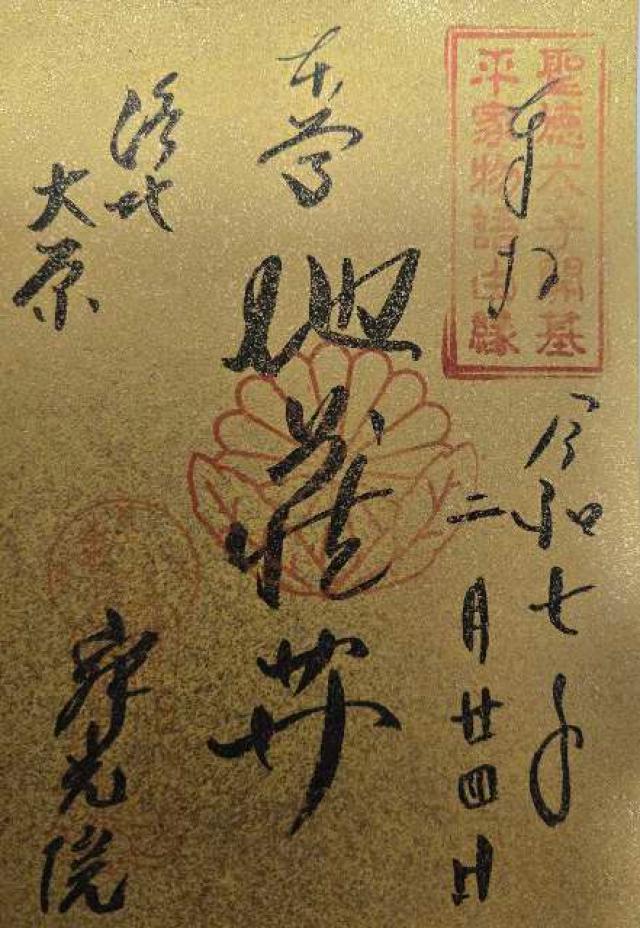 奉拝
聖徳太子開基
平家物語由縁
令和七年
二月廿四日
本尊
地蔵𦬇
洛北
大原
寂光院